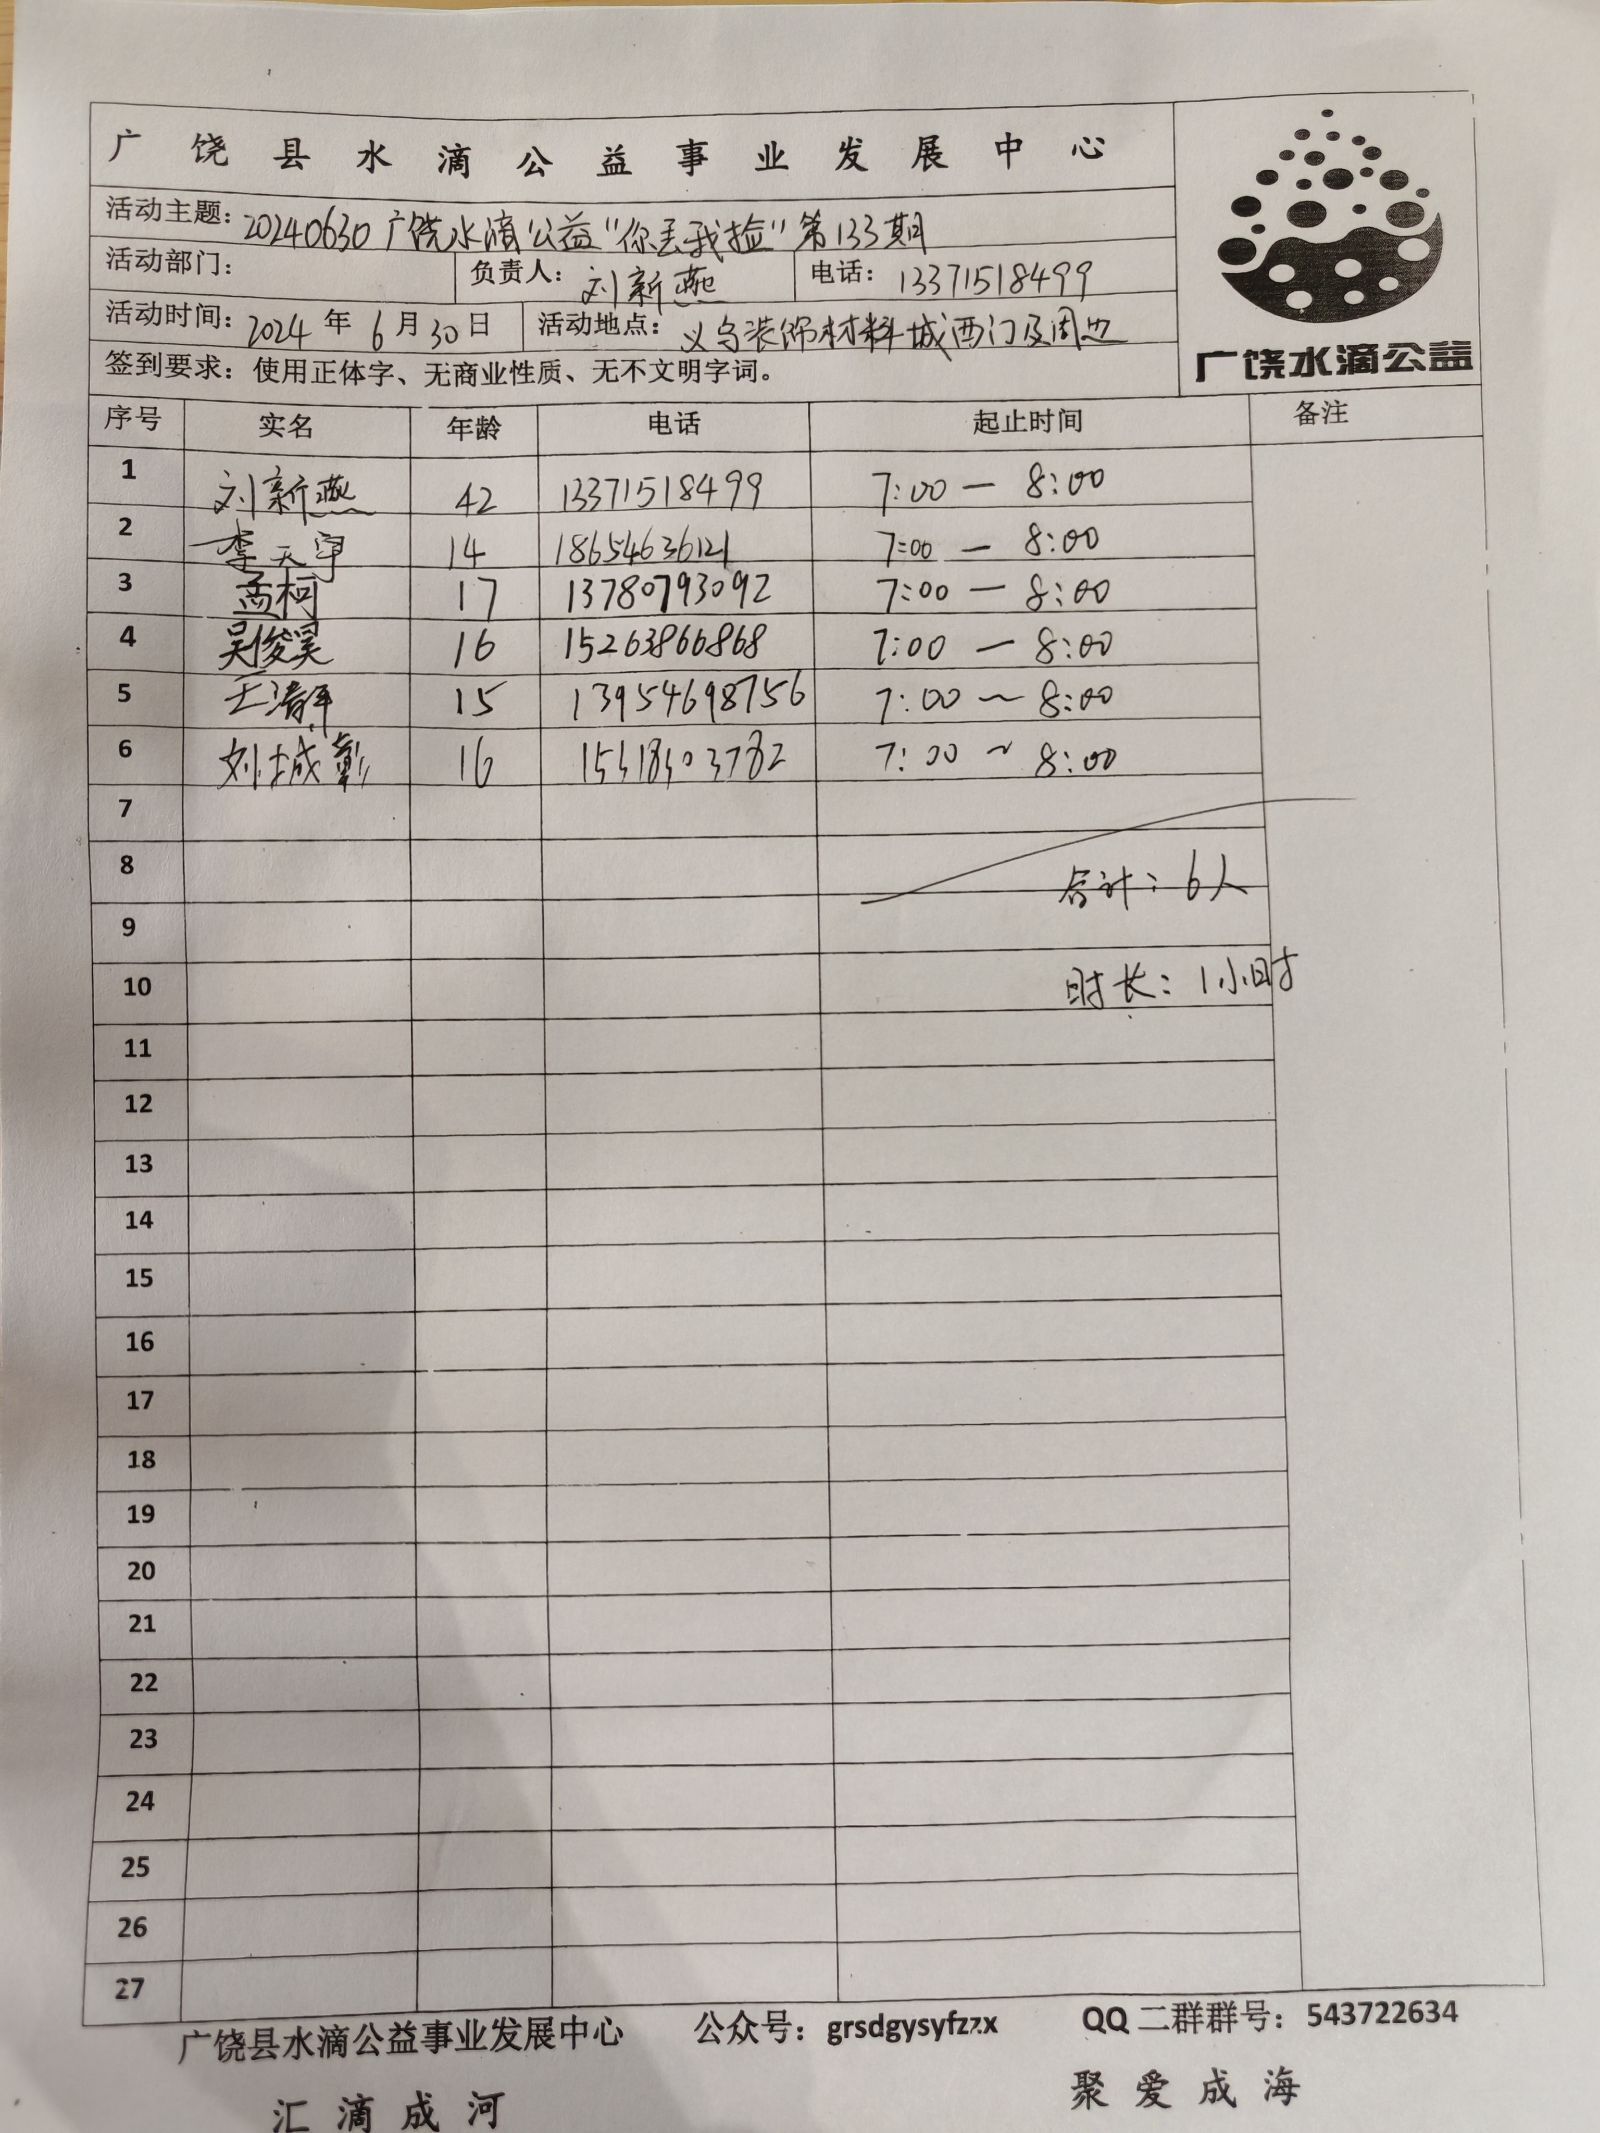 广饶县水滴公益事业发展中心
活动主题：20240630广饶水滴公益“你丢我捡”第133期
活动部门： 负责人：刘新燕 电话：13371518499
活动时间：2024年6月30日 活动地点：义乌装饰材料城西门及周边
签到要求：使用正体字、无商业性质、无不文明字词。
广饶水滴公益
序号 实名 年龄 电话 起止时间 备注
1 刘新燕 42 13371518499 7:00 — 8:00
2 李天宇 14 18654636121 7:00 — 8:00
3 孟柯 17 13780793092 7:00 — 8:00
4 吴俊昊 16 15263866868 7:00 — 8:00
5 王 15 13954698756 7:00 ~ 8:00
6 刘城彰 16 7:00 ~ 8:00
7
8 合计：6人
9
10 时长：1小时
11
12
13
14
15
16
17
18
19
20
21
22
23
24
25
26
27
广饶县水滴公益事业发展中心 公众号：grsdgysyfzzx QQ二群群号：543722634
汇滴成河 聚爱成海